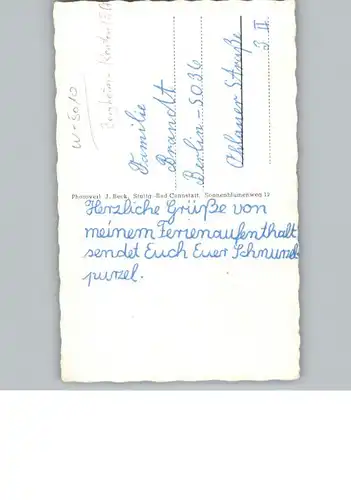 W-5010
Familie
Brandt
Berlin-SO36
Ohlauer Straße
3 II
Photoverl. J. Beck, Stuttg.-Bad Cannstatt, Sonnenblumenweg 12
Herzliche Grüße von
meinem Ferienaufenthalt
sendet Euch Euer Schnurzel-
purzel.